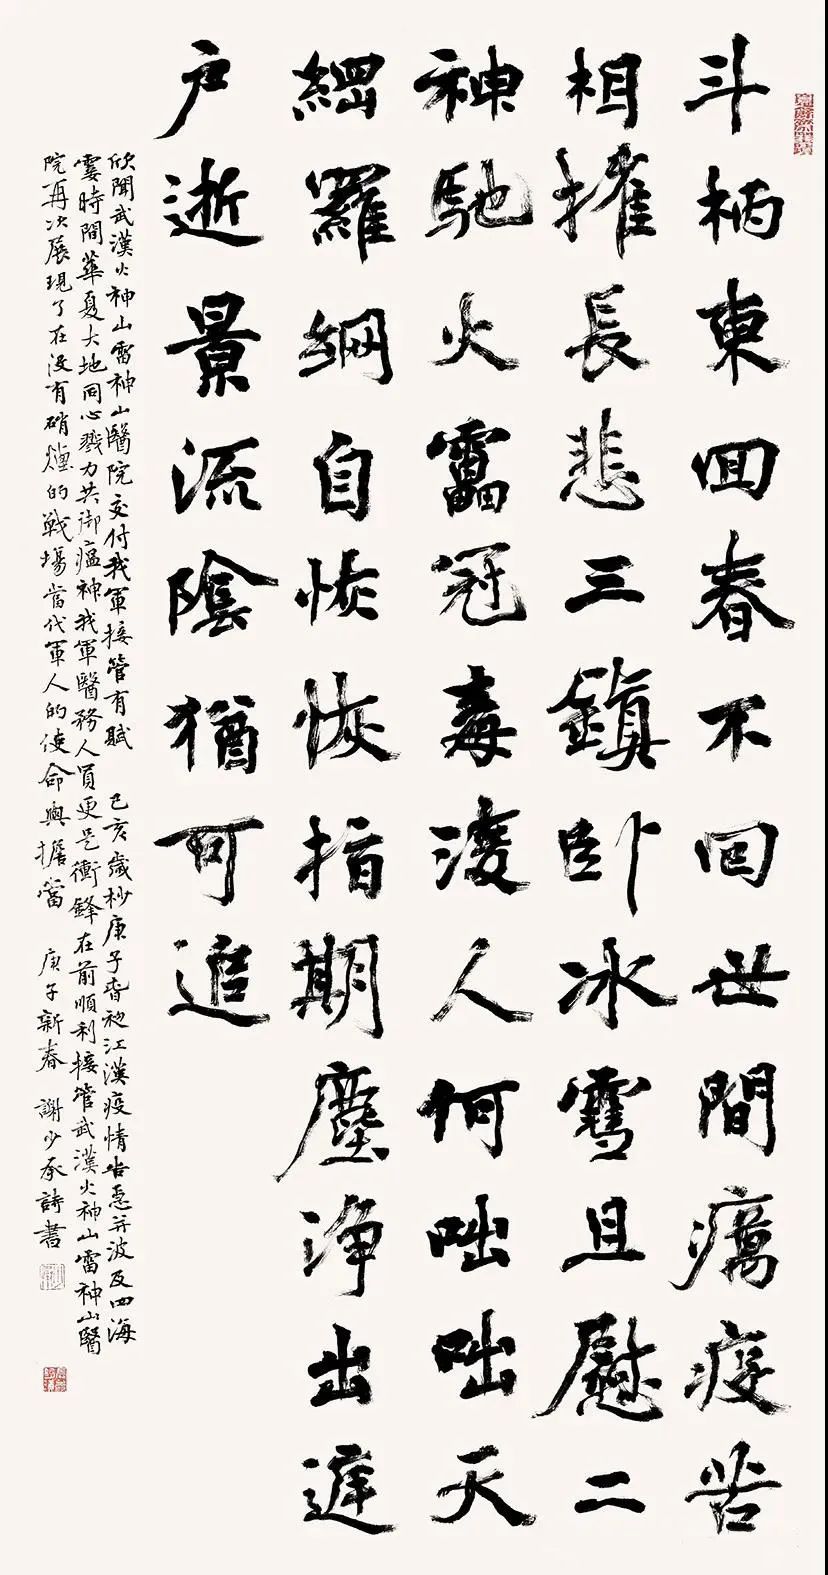 斗柄東囬春不回世間癘疫苦
相摧長悲三鎮卧冰雪且慰二
神馳火靁冠毒淩人何咄咄天
綱羅網自恢恢指期塵净出庭
户逝景流陰猶可追
欣聞武漢火神山雷神山醫院交付我軍接管有賦 己亥歲杪庚子春初江漢疫情告急并波及四海
霎時間華夏大地同心戮力共御瘟神我軍醫務人員更是衝鋒在前順利接管武漢火神山雷神山醫
院再次展現了在没有硝煙的戰場當代軍人的使命與擔當 庚子新春 謝少承詩書